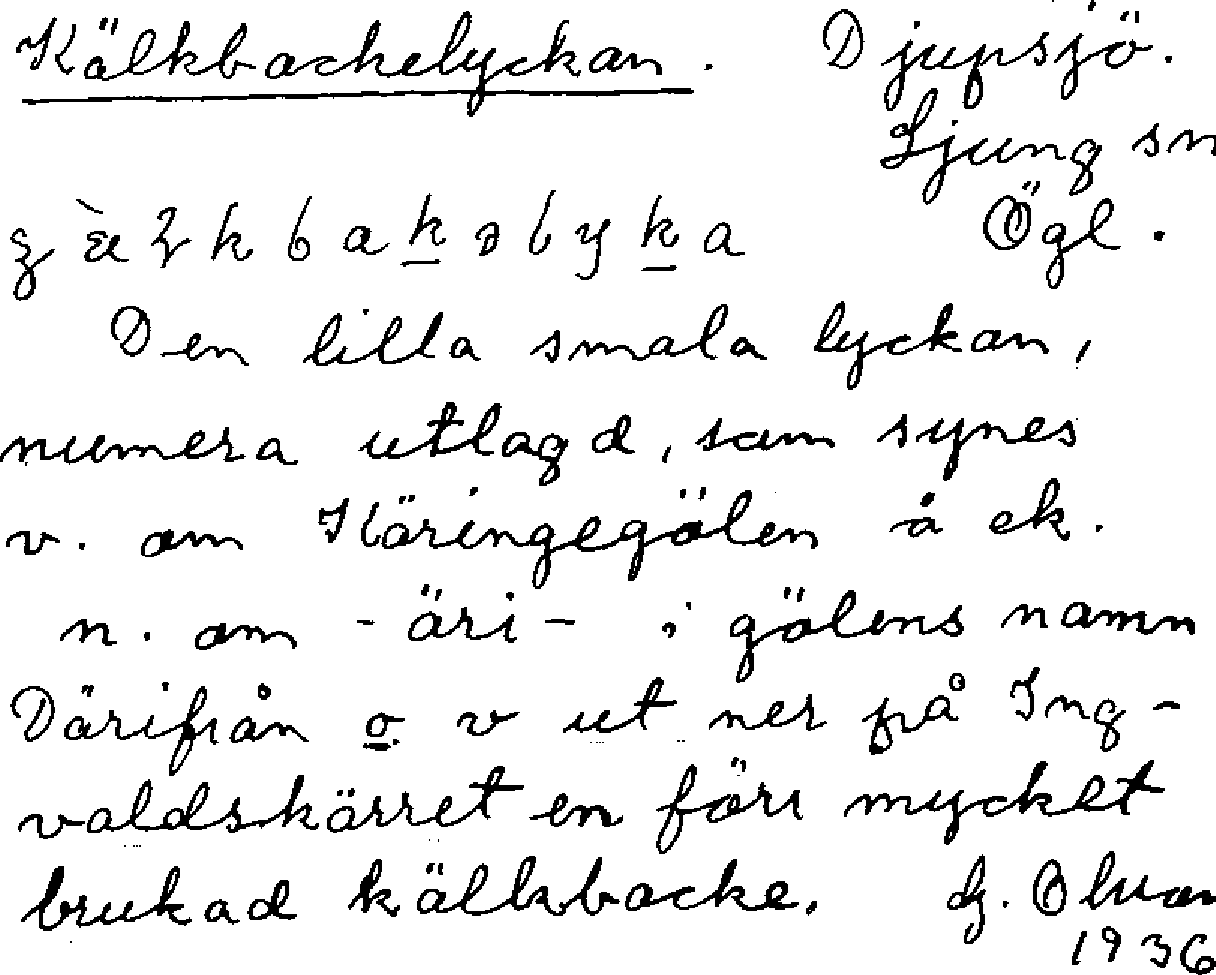 Kälkbackelyckan. Djupsjö.
Ljung sn
Ögl.
Den lilla smala lyckan,
numera utlagd, som synes
v. om Käringegölen å ek.
n. om -äri- i gölens namn
Därifrån o v ut ner på Ing-
valdskärret en förr mycket
brukad kälkbacke.
1936